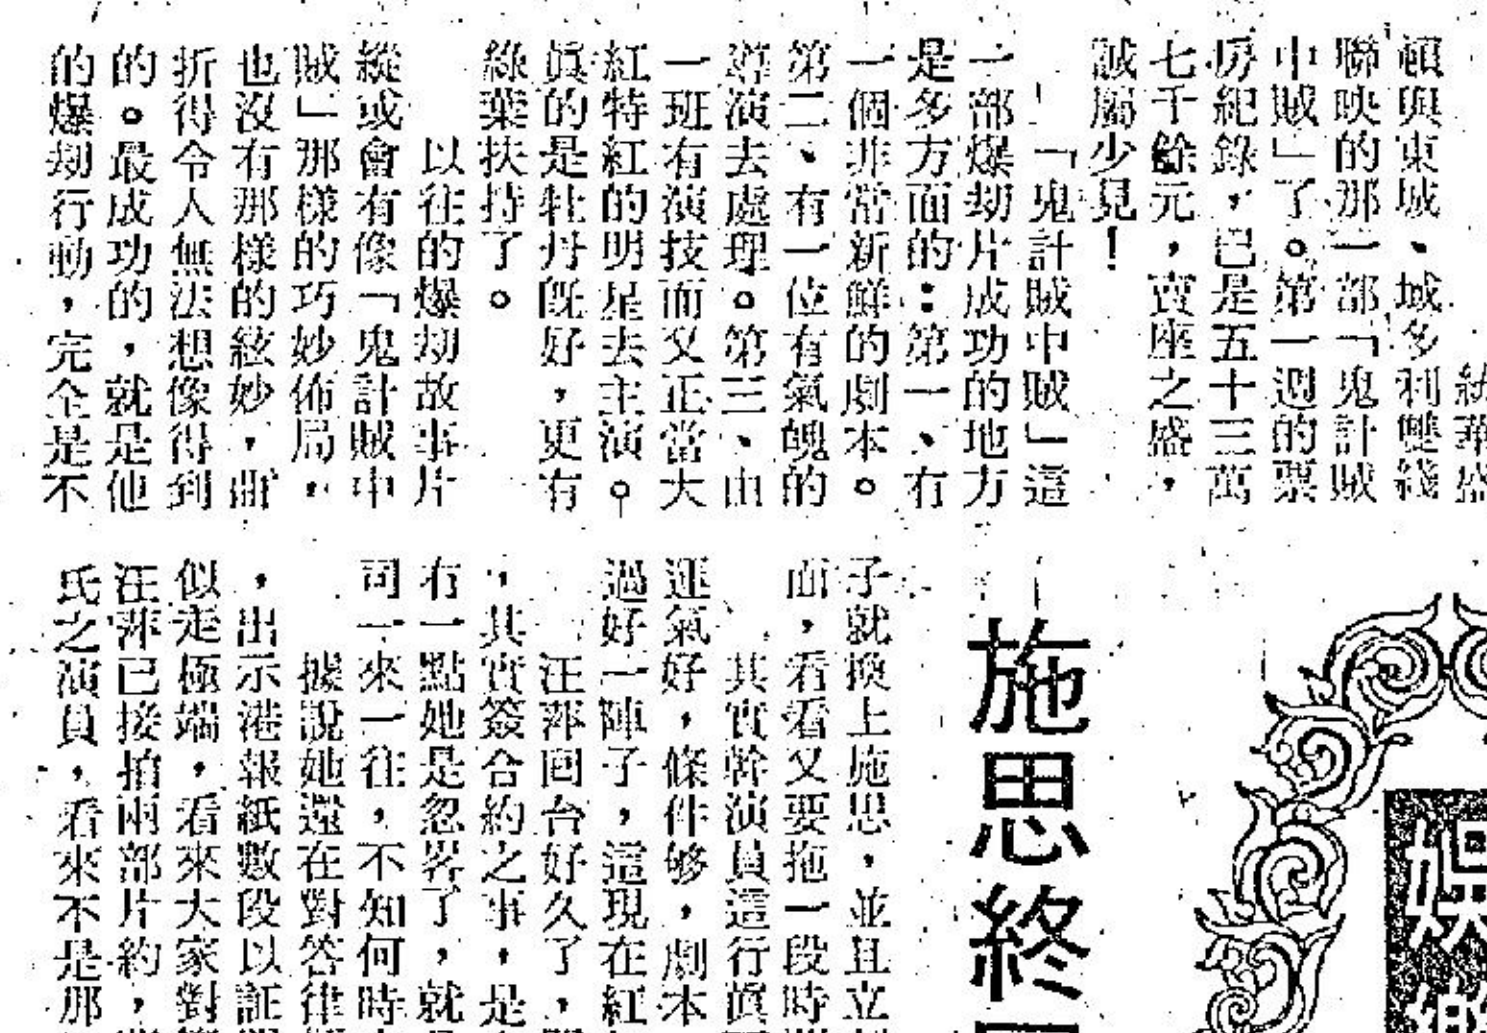 統華盛
頓與東城、域多利雙綫
聯映的那一部「鬼計賊
中賊」了。第一週的票
房紀錄，已是五十三萬
七千餘元，賣座之盛，
誠屬少見！
「鬼計賊中賊」這
一部爆刧片成功的地方
是多方面的：第一、有
一個非常新鮮的劇本。
第二、有一位有氣魄的
導演去處理。第三、由
一班有演技而又正當大
紅特紅的明星去主演。
眞的是牡丹旣好，更有
綠葉扶持了。
以往的爆刧故事片
縱或會有像「鬼計賊中
賊」那樣的巧妙佈局，
也沒有那樣的絃妙，曲
折得令人無法想像得到
的。最成功的，就是他
的爆刧行動，完全是不
施思終
子就換上施思，並且立
面，看看又要拖一段時
其實幹演員這行眞
運氣好，條件够，劇本
過好一陣子，這現在紅
汪萍囘台好久了，
，其實簽合約之事，是
有一點她是忽畧了，就
司一來一往，不知何時
據說她還在對答律
，出示港報紙數段以証
似走極端，看來大家對
汪萍已接拍兩部片約，
氏之演員，看來不是那